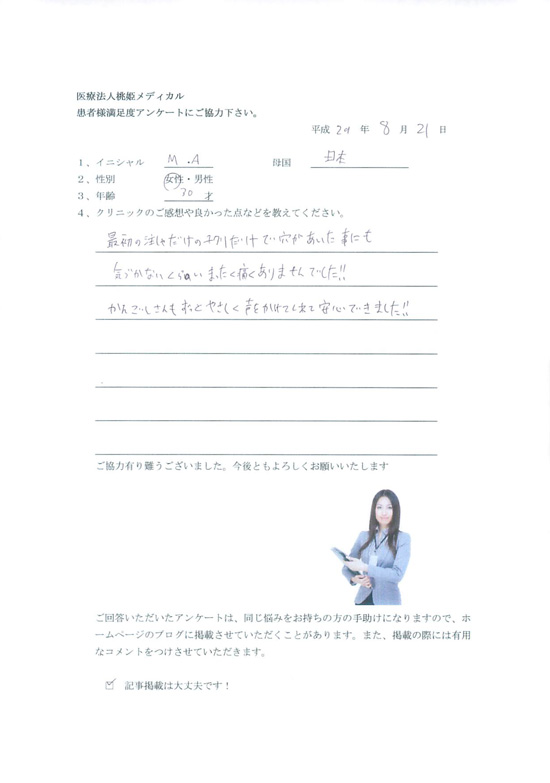 医療法人桃姫メディカル
患者様満足度アンケートにご協力下さい。
平成 29 年 8 月 21 日
1、イニシャル M.A 母国 日本
2、性別 女性・男性
3、年齢 30 才
4、クリニックのご感想や良かった点などを教えてください。
最初の注しゃだけのチクリだけで穴があいた事にも
気づかないくらいまったく痛くありませんでした!!
かんごしさんもずっとやさしく声をかけてくれて安心できました!!
ご協力有り難うございました。今後ともよろしくお願いいたします
ご回答いただいたアンケートは、同じ悩みをお持ちの方の手助けになりますので、ホ
ームページのブログに掲載させていただくことがあります。また、掲載の際には有用
なコメントをつけさせていただきます。
☑ 記事掲載は大丈夫です！